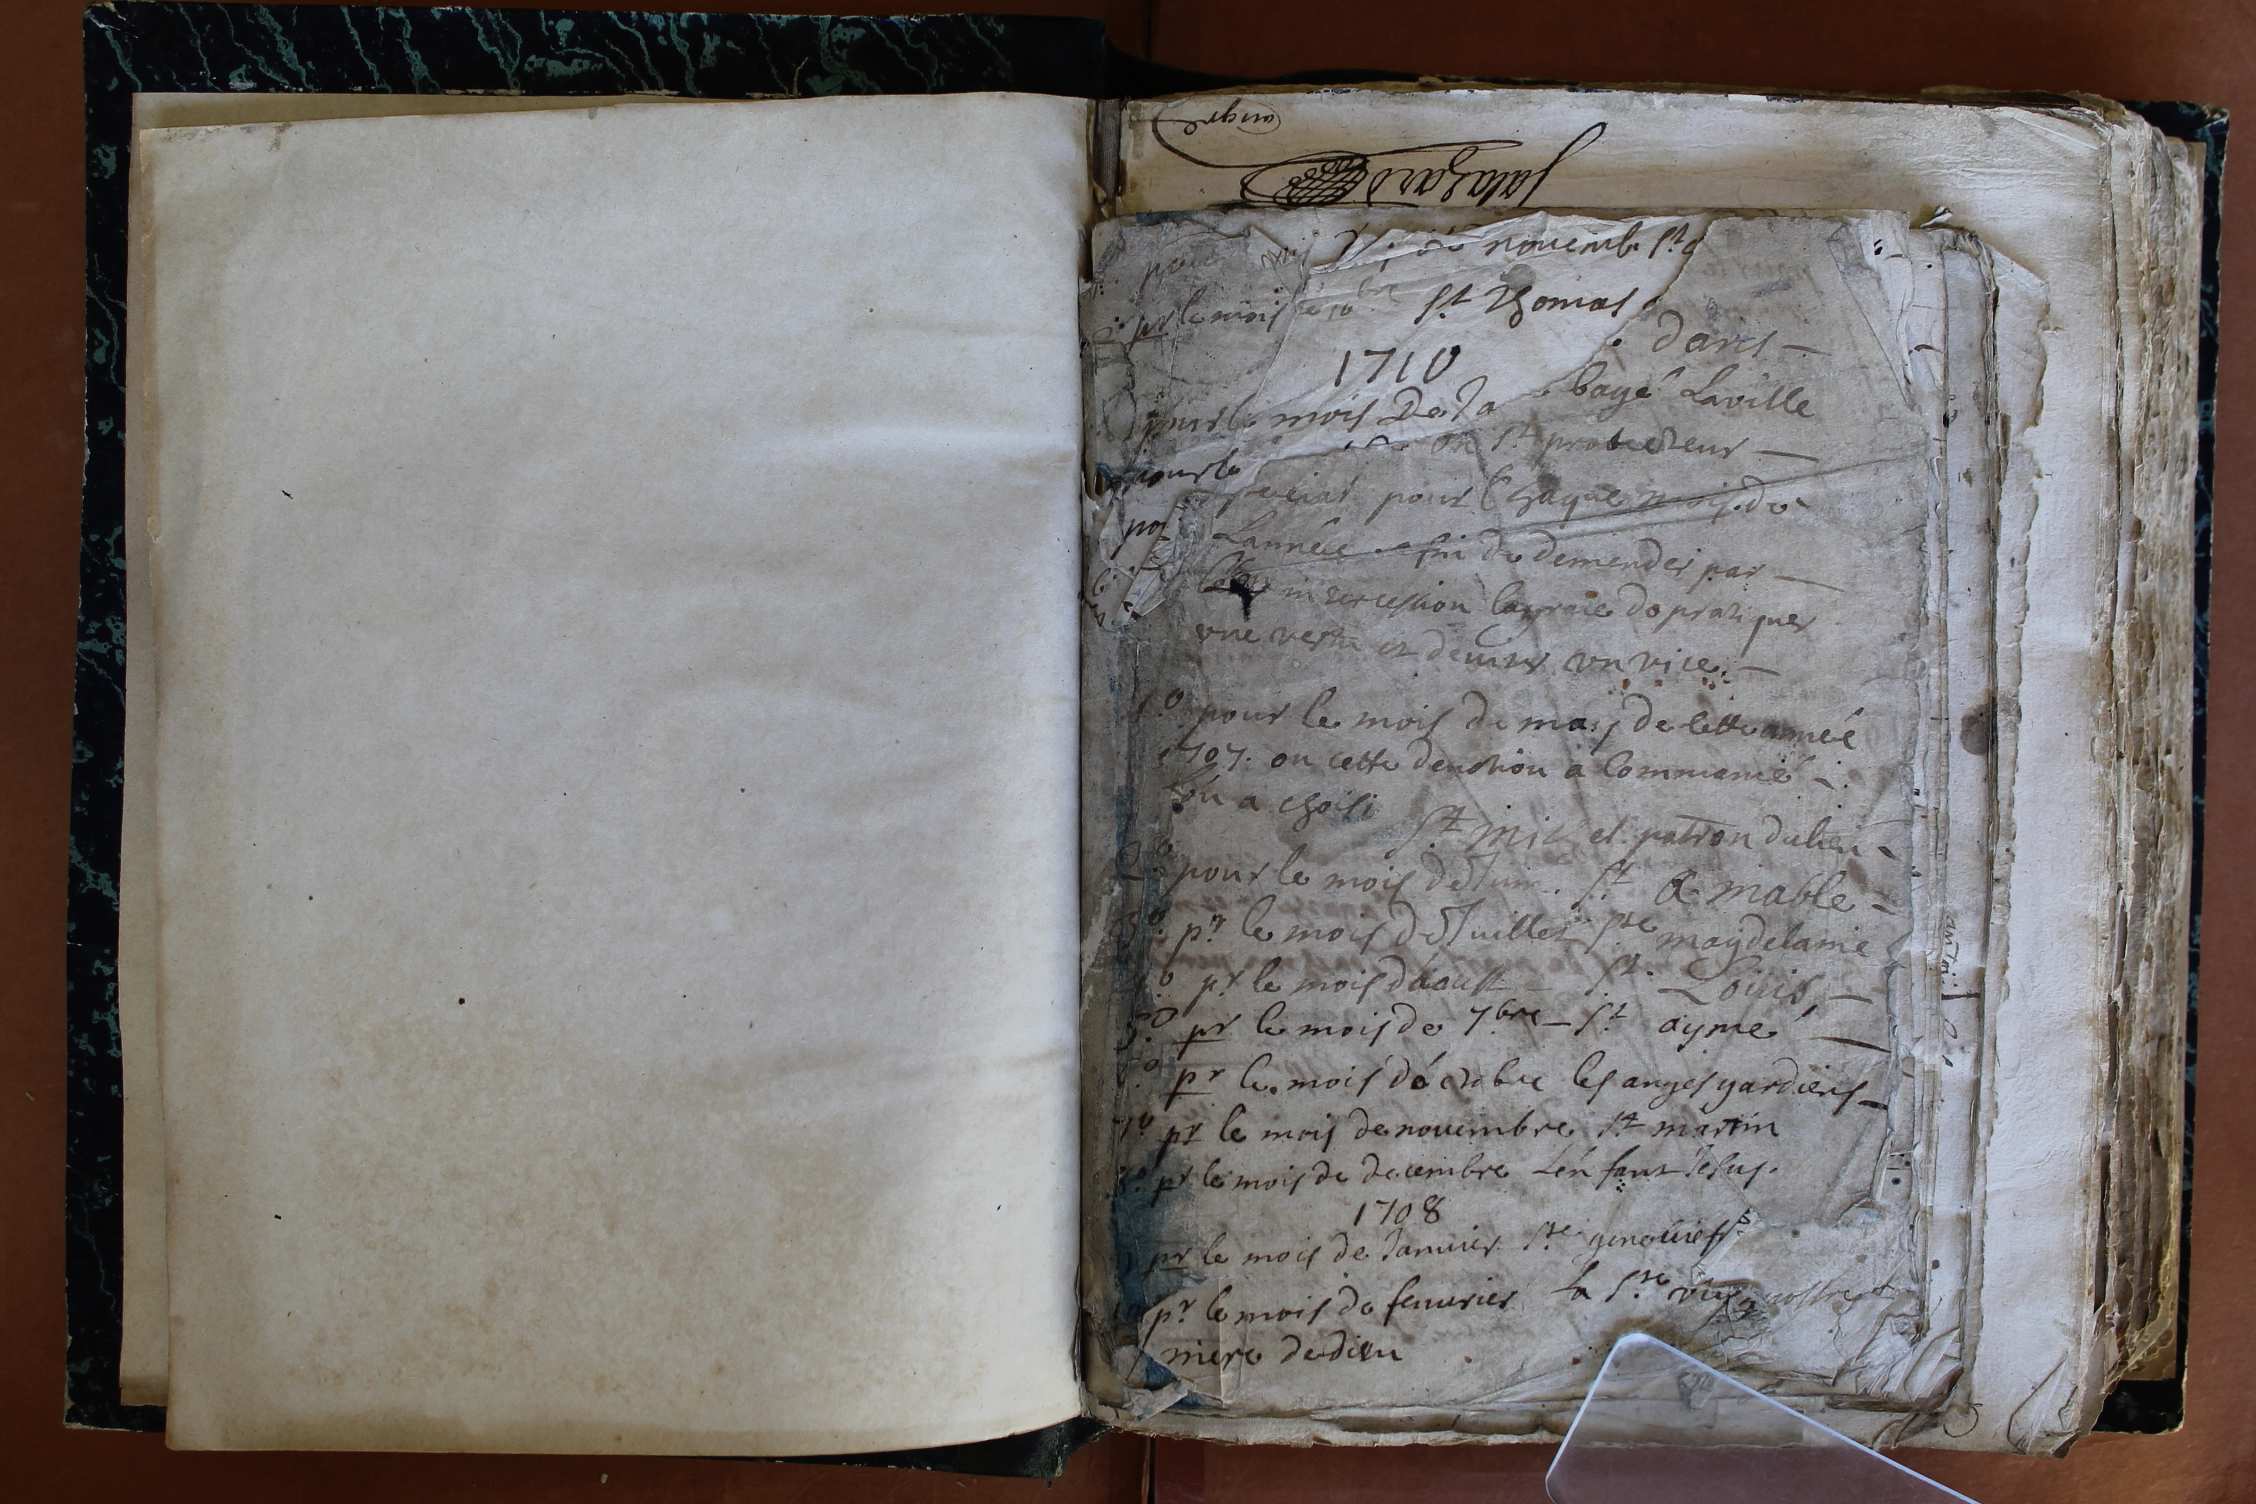 angel
Salazard
novemb. St
pr le mois St Thomas
darcs
1710
bayé Laville
pour le mois de Ja
on St protecteur
pour le
pour Chaque mois de
Lannée afin de demender par
intercession la graie de pratiquer
une vertu et deviter un vice.
1.o pour le mois de may de cette année
1707. on cette devotion a Commancé
L'on a choisi
St michel patron du lieu
2.o pour le mois de Juin. St Amable
3.o pr le mois de Juillet Ste magdelaine
4.o pr le mois d'aoust St. Louis
5.o pr le mois de 7bre St aymé
6.o pr le mois d'octobre les anges gardiens
7o pr le mois de novembre St martin
8.o pr le mois de decembre L'enfant Jesus.
1708
pr le mois de Janvier Ste geneviefve
10 pr le mois de fevurier La Ste vierge
mere de dieu